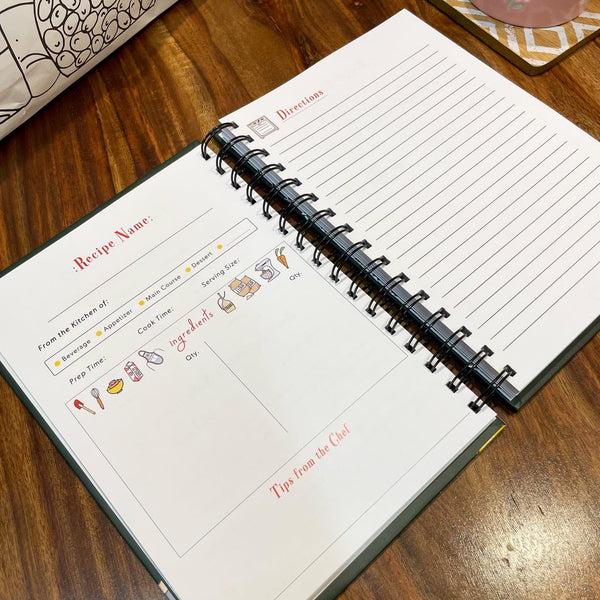 :Recipe Name:
From the Kitchen of:
Beverage Appetizer Main Course Dessert
Prep Time: Cook Time: Serving Size:
Ingredients
Qty. Qty.
Tips from the Chef
Directions